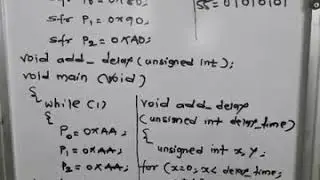 sfr P₁ = 0x90;
55 = 01010101
sfr P₂ = 0xA0;
void add_delay (unsigned int);
void main (void)
{
while (1)
{
P₀ = 0xAA;
P₁ = 0xAA;
P₂ = 0xAA;
void add_delay
(unsigned int delay_time)
{
unsigned int x, y;
for (x=0; x< delay_time;